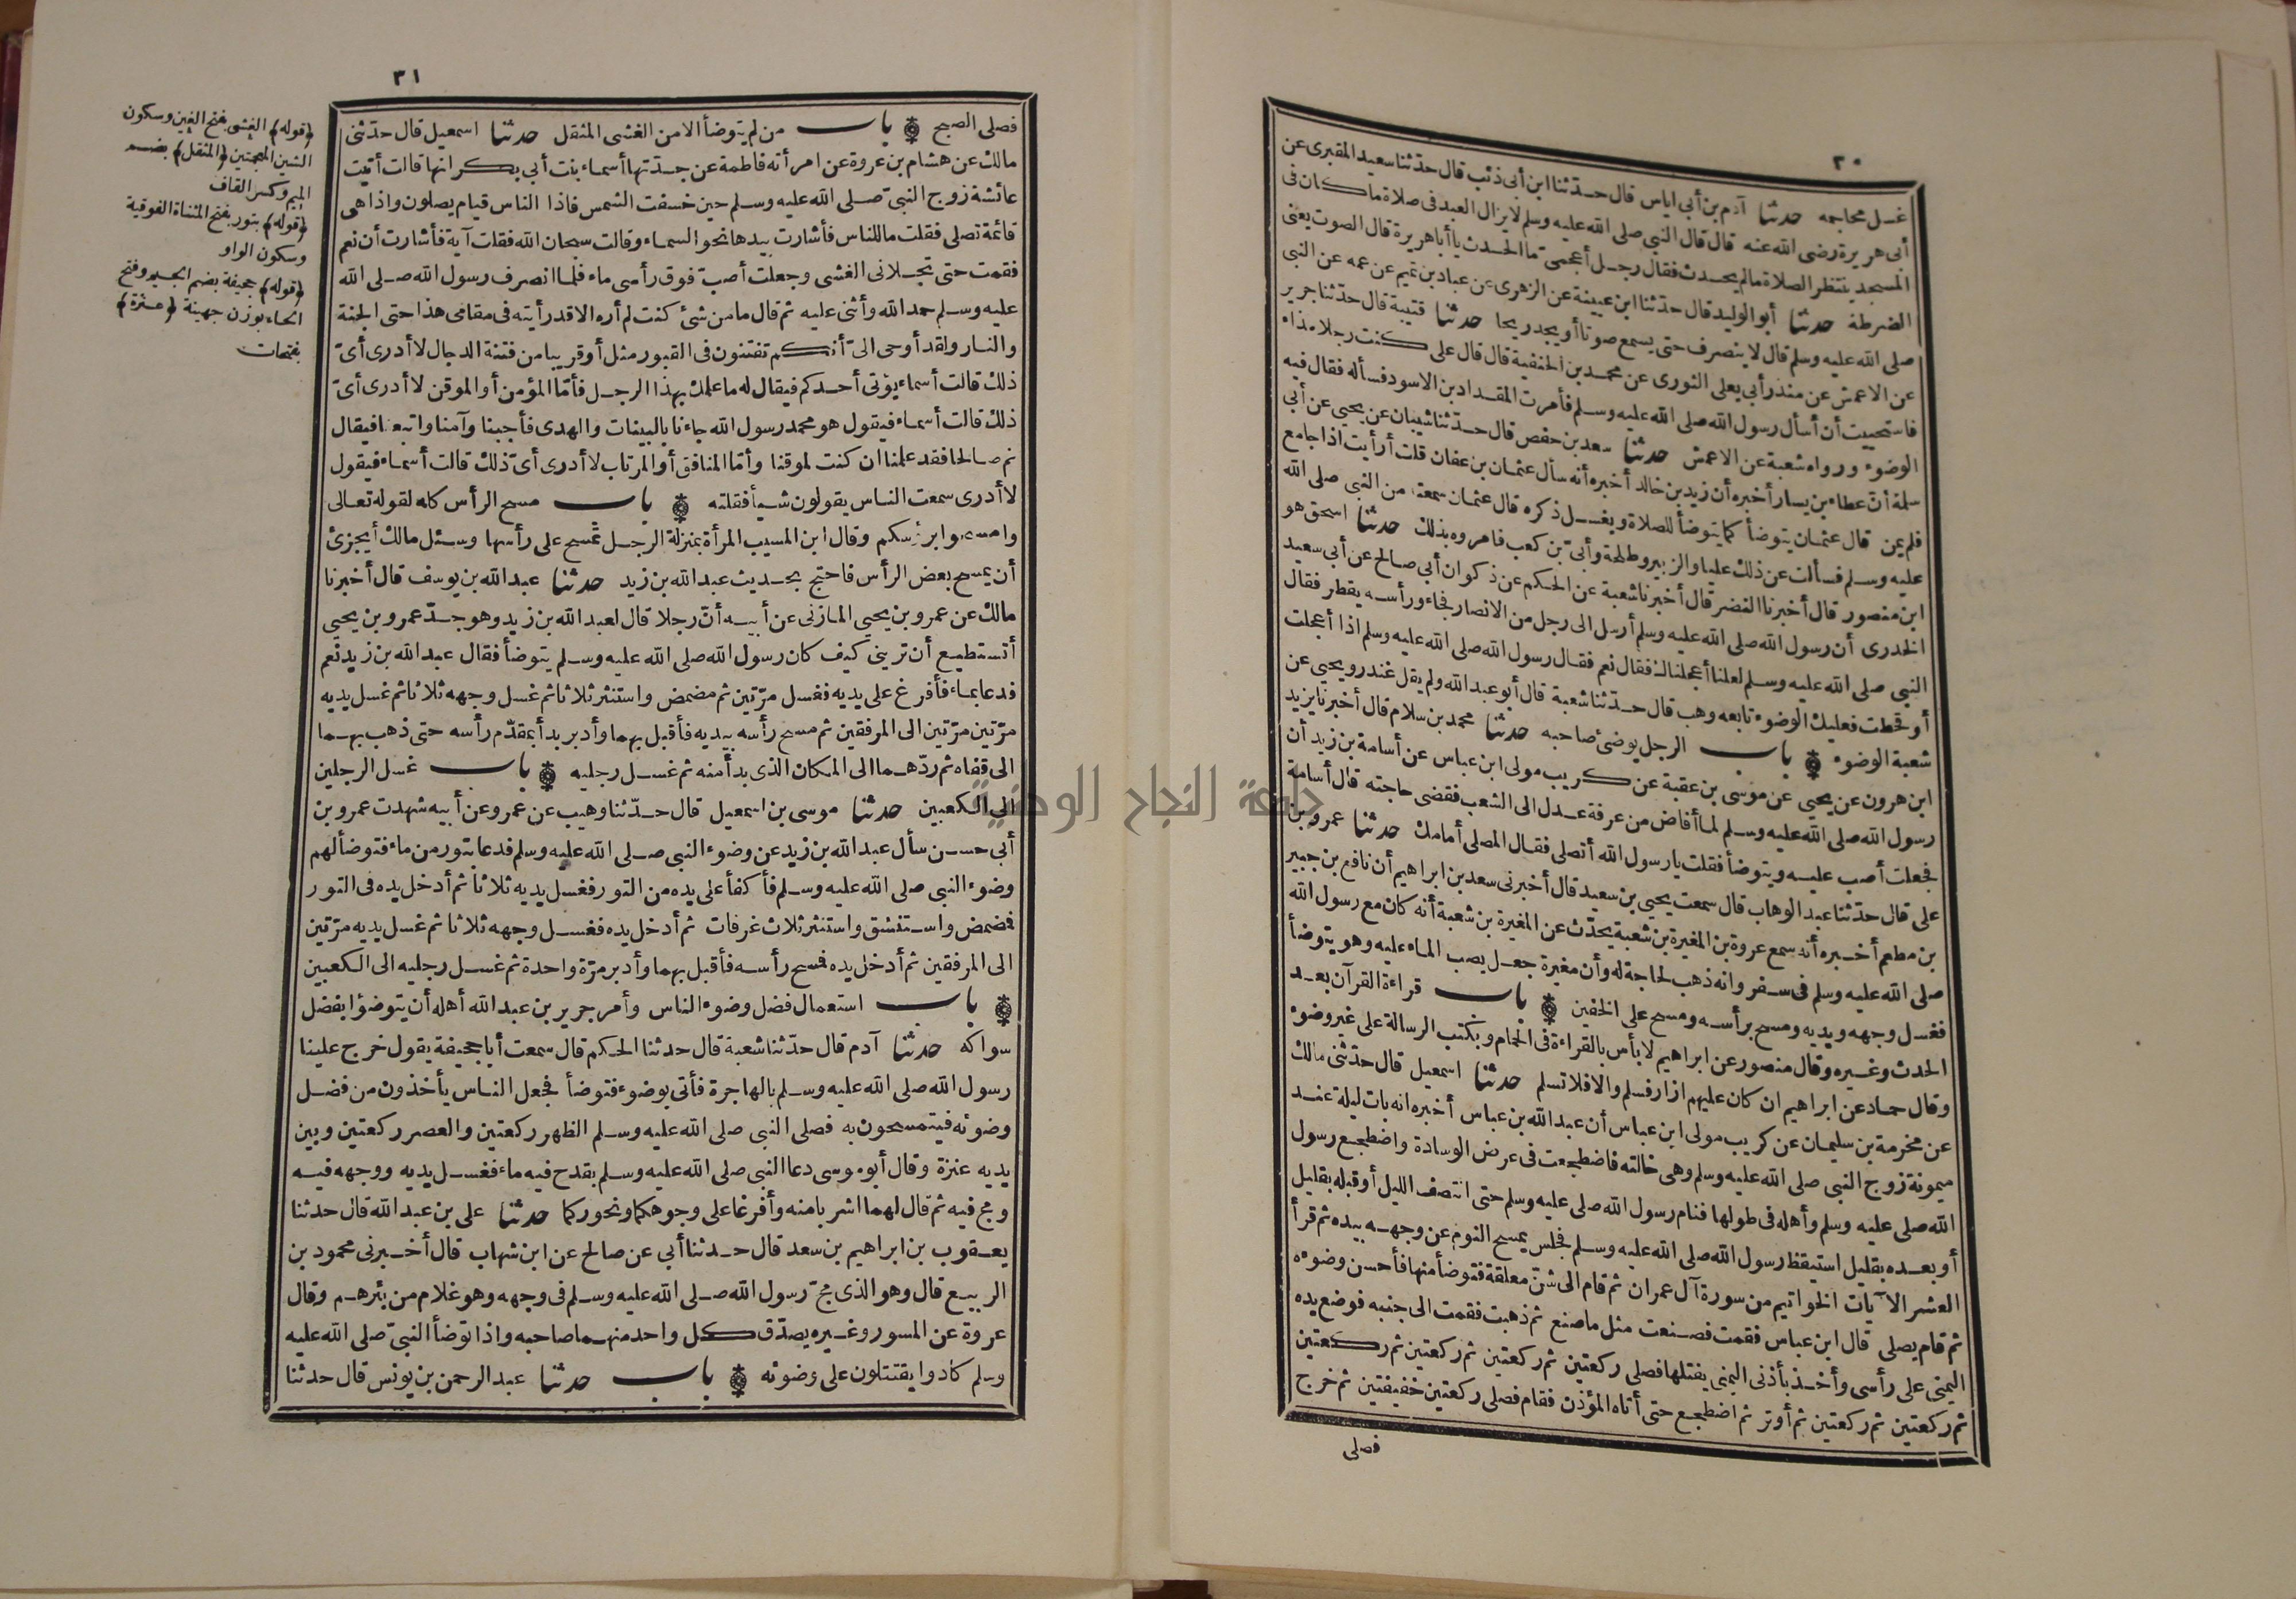 ٣٠
غسل محاجمه حدثنا آدم بن أبى اياس قال حدّثنا ابن أبى ذئب قال حدّثنا سعيد المقبرى عن
أبى هريرة رضى الله عنه قال قال النبي صلى الله عليه وسلم لا يزال العبد فى صلاة ما كان فى
المسجد ينتظر الصلاة ما لم يحدث فقال رجل أعجمى ما الحدث يا أبا هريرة قال الصوت يعنى
الضرطة حدثنا أبو الوليد قال حدّثنا ابن عيينة عن الزهرى عن عباد بن تميم عن عمه عن النبى
صلى الله عليه وسلم قال لا ينصرف حتى يسمع صوتا أو يجد ريحا حدثنا قتيبة قال حدّثنا جرير
عن الاعمش عن منذر أبي يعلى الثورى عن محمد بن الحنفية قال قال على كنت رجلا مذاء
فاستحييت أن أسأل رسول الله صلى الله عليه وسلم فأمرت المقداد بن الاسود فسأله فقال فيه
الوضوء ورواه شعبة عن الاعمش حدثنا سعد بن حفص قال حدّثنا شيبان عن يحيى عن أبى
سلمة أنّ عطاء بن يسار أخبره أن زيد بن خالد أخبره أنه سأل عثمان بن عفان قلت أرأيت اذا جامع
فلم يمن قال عثمان يتوضأ كما يتوضأ للصلاة ويغسل ذكره قال عثمان سمعته من النبى صلى الله
عليه وسلم فسألت عن ذلك عليا والزبير وطلحة وأبىّ بن كعب فامروه بذلك حدثنا اسحق هو
ابن منصور قال أخبرنا النضر قال أخبرنا شعبة عن الحكم عن ذكوان أبى صالح عن أبى سعيد
الخدرى أن رسول الله صلى الله عليه وسلم أرسل الى رجل من الانصار فجاء ورأسه يقطر فقال
النبى صلى الله عليه وسلم لعلنا أعجلناك فقال نعم فقال رسول الله صلى الله عليه وسلم اذا أعجلت
أو قحطت فعليك الوضوء تابعه وهب قال حدّثنا شعبة قال أبو عبد الله ولم يقل غندر ويحيى عن
شعبة الوضوء باب الرجل يوضئ صاحبه حدثنا محمد بن سلام قال أخبرنا يزيد
ابن هرون عن يحيى عن موسى بن عقبة عن كريب مولى ابن عباس عن أسامة بن زيد أن
رسول الله صلى الله عليه وسلم لما أفاض من عرفة عدل الى الشعب فقضى حاجته قال أسامة
فجعلت أصب عليه ويتوضأ فقلت يا رسول الله أتصلى فقال المصلى أمامك حدثنا عمرو بن
على قال حدّثنا عبد الوهاب قال سمعت يحيى بن سعيد قال أخبرنى سعد بن ابراهيم أن نافع بن جبير
بن مطعم أخبره أنه سمع عروة بن المغيرة بن شعبة يحدّث عن المغيرة بن شعبة أنه كان مع رسول الله
صلى الله عليه وسلم فى سفر وانه ذهب لحاجة له وأن مغيرة جعل يصب الماء عليه وهو يتوضأ
فغسل وجهه ويديه ومسح برأسه ومسح على الخفين باب قراءة القرآن بعد
الحدث وغيره وقال منصور عن ابراهيم لا بأس بالقراءة فى الحمام وبكتب الرسالة على غير وضوء
وقال حماد عن ابراهيم ان كان عليهم ازار فسلم والا فلا تسلم حدثنا اسمعيل قال حدّثنى مالك
عن مخرمة بن سليمان عن كريب مولى ابن عباس أن عبد الله بن عباس أخبره انه بات ليلة عند
ميمونة زوج النبى صلى الله عليه وسلم وهى خالته فاضطجعت فى عرض الوسادة واضطجع رسول
الله صلى عليه وسلم وأهله فى طولها فنام رسول الله صلى عليه وسلم حتى انتصف الليل أو قبله بقليل
أو بعده بقليل استيقظ رسول الله صلى الله عليه وسلم فجلس يمسح النوم عن وجهه بيده ثم قرأ
العشر الآيات الخواتيم من سورة آل عمران ثم قام الى شنّ معلقة فتوضأ منها فأحسن وضوءه
ثم قام يصلى قال ابن عباس فقمت فصنعت مثل ما صنع ثم ذهبت فقمت الى جنبه فوضع يده
اليمنى على رأسى وأخذ بأذنى اليمنى يفتلها فصلى ركعتين ثم ركعتين ثم ركعتين ثم ركعتين
ثم ركعتين ثم ركعتين ثم أوتر ثم اضطجع حتى أتاه المؤذن فقام فصلى ركعتين خفيفتين ثم خرج
فصلى
٣١
فصلى الصبح باب من لم يتوضأ الا من الغشى المثقل حدثنا اسمعيل قال حدّثنى
مالك عن هشام بن عروة عن امرأته فاطمة عن جدّتها أسماء بنت أبى بكر انها قالت أتيت
عائشة زوج النبىّ صلى الله عليه وسلم حين خسفت الشمس فاذا الناس قيام يصلون واذا هى
قائمة تصلى فقلت ما للناس فأشارت بيدها نحو السماء وقالت سبحان الله فقلت آية فأشارت أن نعم
فقمت حتى تجلانى الغشى وجعلت أصبّ فوق رأسى ماء فلما انصرف رسول الله صلى الله
عليه وسلم حمد الله وأثنى عليه ثم قال ما من شئ كنت لم أره الا قد رأيته فى مقامى هذا حتى الجنة
والنار ولقد أوحى الىّ أنكم تفتنون فى القبور مثل أو قريبا من فتنة الدجال لا أدرى أىّ
ذلك قالت أسماء يؤتى أحدكم فيقال له ما علمك بهذا الرجل فأمّا المؤمن أو الموقن لا أدرى أىّ
ذلك قالت أسماء فيقول هو محمد رسول الله جاءنا بالبينات والهدى فأجبنا وآمنا واتبعنا فيقال
نم صالحا فقد علمنا ان كنت لموقنا وأمّا المنافق أو المرتاب لا أدرى أىّ ذلك قالت أسماء فيقول
لا أدرى سمعت الناس يقولون شيأ فقلته باب مسح الرأس كله لقوله تعالى
وامسحوا برؤسكم وقال ابن المسيب المرأة بمنزلة الرجل تمسح على رأسها وسئل مالك أيجزئ
أن يمسح بعض الرأس فاحتج بحديث عبد الله بن زيد حدثنا عبد الله بن يوسف قال أخبرنا
مالك عن عمرو بن يحيى المازنى عن أبيه أنّ رجلا قال لعبد الله بن زيد وهو جدّ عمرو بن يحيى
أتستطيع أن ترينى كيف كان رسول الله صلى الله عليه وسلم يتوضأ فقال عبد الله بن زيد نعم
فدعا بماء فأفرغ على يديه فغسل مرّتين ثم مضمض واستنثر ثلاثا ثم غسل وجهه ثلاثا ثم غسل يديه
مرّتين مرّتين الى المرفقين ثم مسح رأسه بيديه فأقبل بهما وأدبر بدأ بمقدّم رأسه حتى ذهب بهما
الى قفاه ثم ردّهما الى المكان الذى بدأ منه ثم غسل رجليه باب غسل الرجلين
الى الكعبين حدثنا موسى بن اسمعيل قال حدّثنا وهيب عن عمرو عن أبيه شهدت عمرو بن
أبى حسن سأل عبد الله بن زيد عن وضوء النبى صلى الله عليه وسلم فدعا بتور من ماء فتوضأ لهم
وضوء النبى صلى الله عليه وسلم فأكفأ على يده من التور فغسل يديه ثلاثا ثم أدخل يده فى التور
فمضمض واستنشق واستنثر ثلاث غرفات ثم أدخل يده فغسل وجهه ثلاثا ثم غسل يديه مرّتين
الى المرفقين ثم أدخل يده فمسح رأسه فأقبل بهما وأدبر مرّة واحدة ثم غسل رجليه الى الكعبين
باب استعمال فضل وضوء الناس وأمر جرير بن عبد الله أهله أن يتوضؤا بفضل
سواكه حدثنا آدم قال حدّثنا شعبة قال حدثنا الحكم قال سمعت أبا جحيفة يقول خرج علينا
رسول الله صلى الله عليه وسلم بالهاجرة فأتى بوضوء فتوضأ فجعل الناس يأخذون من فضل
وضوئه فيتمسحون به فصلى النبى صلى الله عليه وسلم الظهر ركعتين والعصر ركعتين وبين
يديه عنزة وقال أبو موسى دعا النبى صلى الله عليه وسلم بقدح فيه ماء فغسل يديه ووجهه فيه
ومج فيه ثم قال لهما اشربا منه وأفرغا على وجوهكما ونحوركما حدثنا على بن عبد الله قال حدثنا
يعقوب بن ابراهيم بن سعد قال حدثنا أبى عن صالح عن ابن شهاب قال أخبرنى محمود بن
الربيع قال وهو الذى مجّ رسول الله صلى الله عليه وسلم فى وجهه وهو غلام من بئرهم وقال
عروة عن المسور وغيره يصدّق كل واحد منهما صاحبه واذا توضأ النبىّ صلى الله عليه
وسلم كادوا يقتتلون على وضوئه باب حدثنا عبد الرحمن بن يونس قال حدثنا
(قوله) الغشى بفتح الغين وسكون
الشين المعجمتين (المثقل) بضم
الميم وكسر القاف
(قوله) بتور بفتح المثناة الفوقية
وسكون الواو
(قوله) جحيفة بضم الجيم وفتح
الحاء بوزن جهينة (عنزة)
بفتحات
جامعة النجاح الوطنية